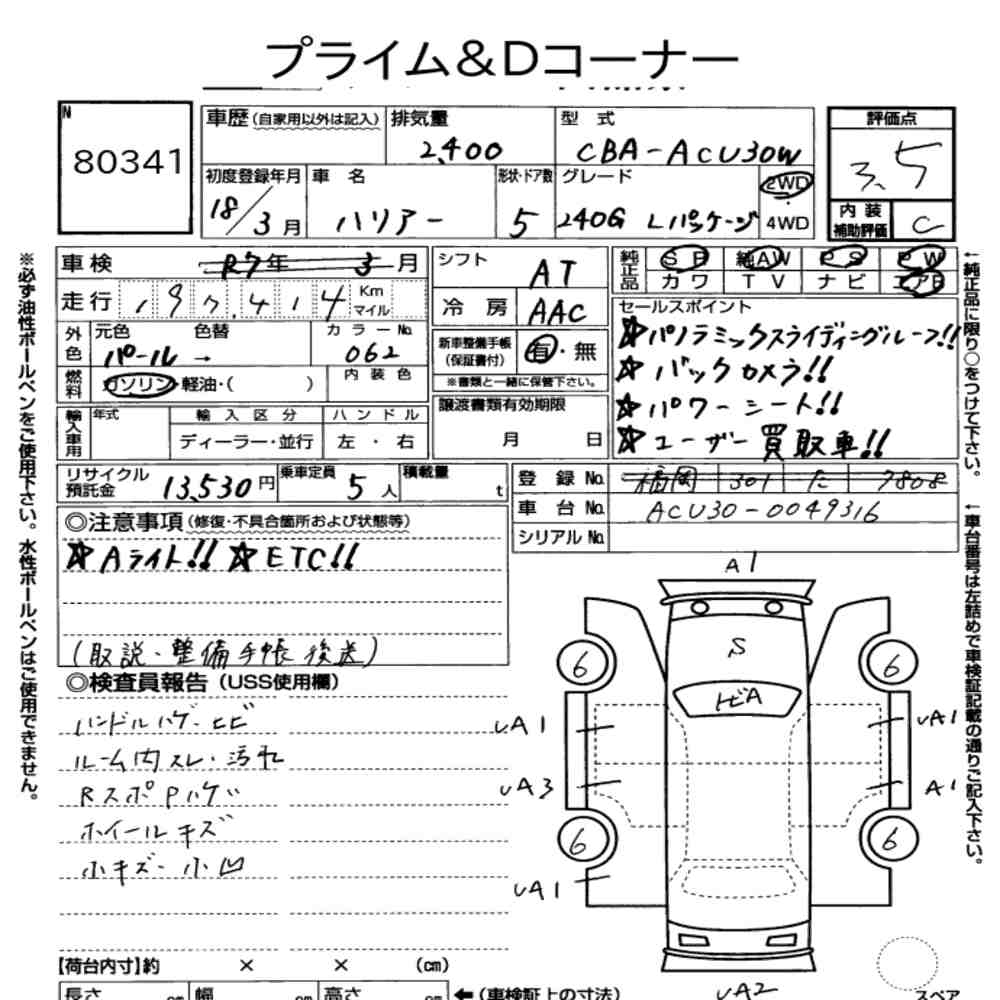 プライム&Dコーナー
N
80341
車歴(自家用以外は記入)
排気量
2,400
型 式
CBA-ACU30W
評価点
3.5
初度登録年月
18/3月
車 名
ハリアー
形状・ドア数
5
グレード
240G Lパッケージ
2WD
・
4WD
内 装
補助評価
C
車検 R7年 3月
走行 197,414 Km マイル
外色 元色 色替
パール →
カラーNo.
062
燃料 ガソリン・軽油・( )
内 装 色
輸入車用 年式
輸 入 区 分
ディーラー・並行
ハ ン ド ル
左 ・ 右
シフト AT
冷 房 AAC
新車整備手帳
(保証書付)
有・無
※書類と一緒に保管下さい。
譲渡書類有効期限
月 日
純正品 SR 純AW PS PW
カワ TV ナビ エアB
セールスポイント
☆パノラミックスライディングルーフ!!
☆バックカメラ!!
☆パワーシート!!
☆ユーザー買取車!!
リサイクル
預託金
13,530円
乗車定員
5人
積載量
t
登 録 No. 福岡 301 た 7808
車 台 No. ACU30-0049316
シリアル No.
◎注意事項(修復・不具合箇所および状態等)
☆Aライト!! ☆ETC!!
(取説・整備手帳後送)
◎検査員報告(USS使用欄)
ハンドルハゲ・ヒビ
ルーム内スレ・汚れ
RスポPハゲ
ホイールキズ
小キズ・小凹
A1
S
トビA
6
6
6
6
UA1
UA1
UA3
A1
UA1
UA2
【荷台内寸】約 × × (cm)
長さ cm 幅 cm 高さ cm
←(車検証上の寸法)
スペア
※必ず油性ボールペンをご使用下さい。水性ボールペンはご使用できません。
←純正品に限り○をつけて下さい。
←車台番号は左詰めで車検証記載の通りご記入下さい。